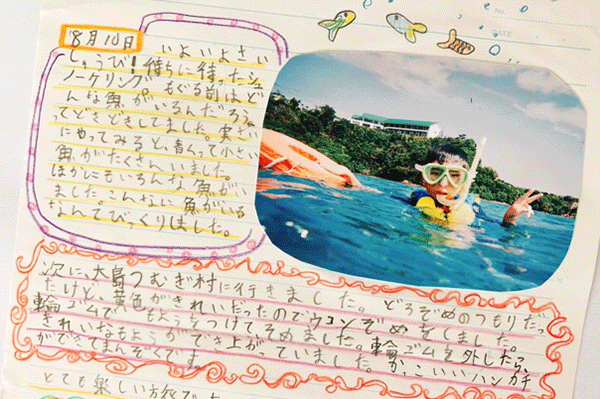 DATE
8月10日 いよいよさい
しゅうび!待ちに待ったシュ
ノーケリング。もぐる前はど
んな魚がいるんだろう。
ってどきどきしてました。実さい
にやってみると、青くって小さい
魚がたくさんいました。
ほかにもいろんな魚がい
ました。こんなに魚がいる
なんてびっくりしました。
次に、大島つむぎ村に行きました。どろぞめのつもりだっ
たけど、黄色がきれいだったのでウコンぞめをしました。
輪ゴムでもようをつけてそめました。輪ゴムを外したら、
きれいなもようができ上がっていました。かっこいいハンカチ
ができてまんぞくです。
とても楽しい旅で